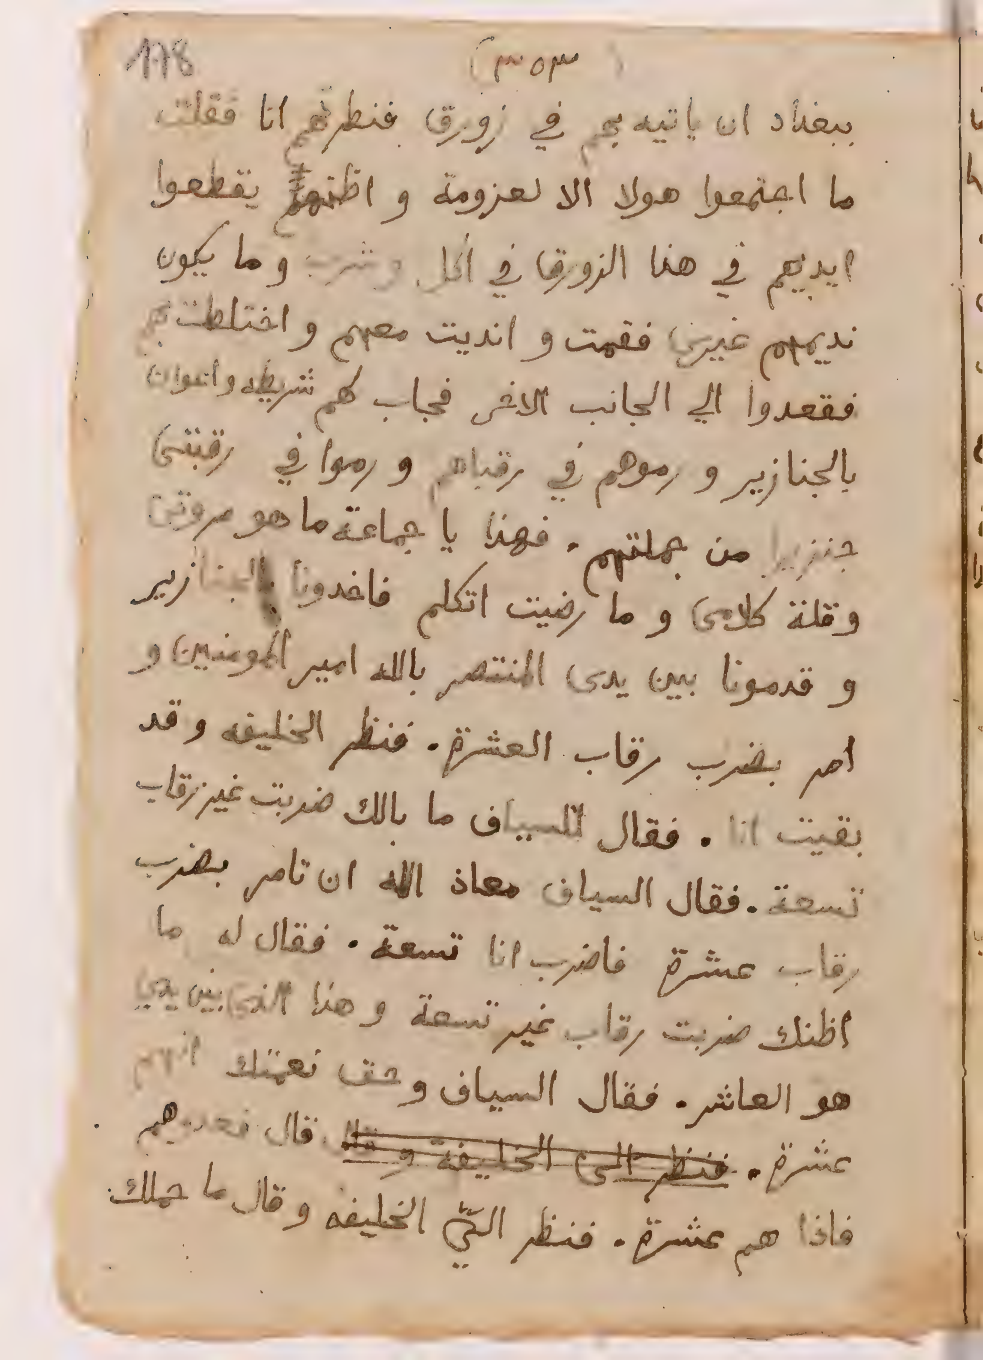 178
(٣٥٣)
ببغداد ان ياتيه بهم في زورق فنظرتهم انا فقلت
ما اجتمعوا هولا الا لعزومة و اظنهم يقطعوا
ايديهم في هذا الزورق في اكل و شرب و ما يكون
نديمهم غيري فقمت و انديت معهم و اختلطت بهم
فقعدوا الي الجانب الاخر فجاب لهم شريطه و اعوان
بالجنازير و رموهم في رقباهم و رموا في رقبتى
جنزيرا من جملتهم . فهذا يا جماعة ما هو مروتى
وقلة كلامى و ما رضيت اتكلم فاخدونا بالجنازير
و قدمونا بين يدى المنتصر بالله امير المومنين و
امر بضرب رقاب العشرة . فنظر الخليفه و قد
بقيت انا . فقال للسياف ما بالك ضربت غير رقاب
تسعة . فقال السياف معاذ الله ان تامر بضرب
رقاب عشرة فاضرب انا تسعة . فقال له ما
اظنك ضربت رقاب غير تسعة و هذا الذي بين يدي
هو العاشر . فقال السياف و حق نعمتك انهم
عشرة . فنظر الى الخليفة و قال قال فعدوهم
فاذا هم عشرة . فنظر اليّ الخليفه و قال ما حملك